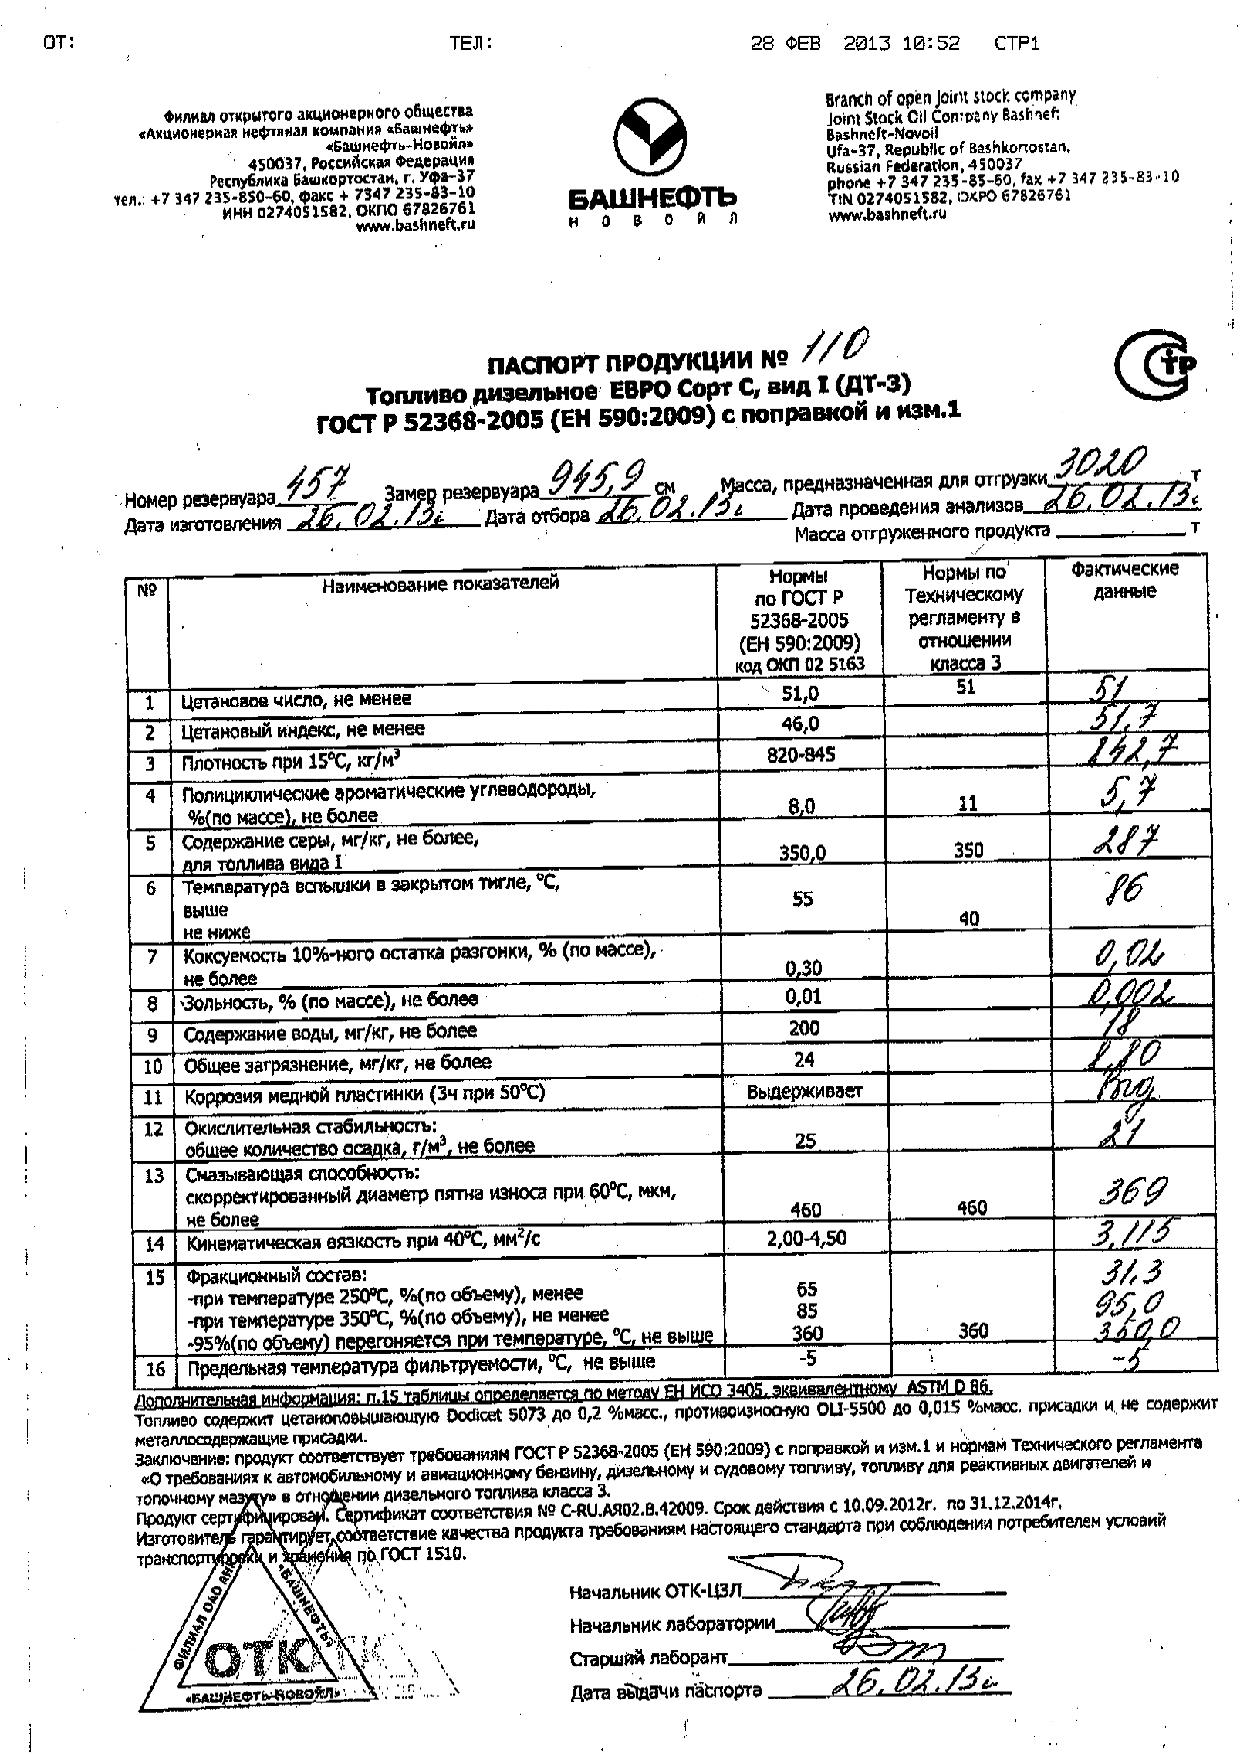 ОТ: ТЕЛ: 28 ФЕВ 2013 10:52 СТР1
Филиал открытого акционерного общества
«Акционерная нефтяная компания «Башнефть»
«Башнефть-Новойл»
450037, Российская Федерация
Республика Башкортостан, г. Уфа-37
тел.: +7 347 235-850-60, факс + 7347 235-83-10
ИНН 0274051582, ОКПО 67826761
www.bashneft.ru
БАШНЕФТЬ
НОВОЙЛ
Branch of open joint stock company
Joint Stock Oil Company Bashneft
Bashneft-Novoil
Ufa-37, Republic of Bashkortostan,
Russian Federation, 450037
phone +7 347 235-85-60, fax +7 347 235-83-10
TIN 0274051582, OKPO 67826761
www.bashneft.ru
ПАСПОРТ ПРОДУКЦИИ № 110
Топливо дизельное ЕВРО Сорт С, вид I (ДТ-3)
ГОСТ Р 52368-2005 (ЕН 590:2009) с поправкой и изм.1
Номер резервуара 457 Замер резервуара 945,9 см Масса, предназначенная для отгрузки 3020 т
Дата изготовления 26.02.13г Дата отбора 26.02.13г Дата проведения анализов 26.02.13г
Масса отгруженного продукта т
№ Наименование показателей Нормы по ГОСТ Р 52368-2005 (ЕН 590:2009) код ОКП 02 5163 Нормы по Техническому регламенту в отношении класса 3 Фактические данные
1 Цетановое число, не менее 51,0 51 51
2 Цетановый индекс, не менее 46,0 51,7
3 Плотность при 15°С, кг/м³ 820-845 842,7
4 Полициклические ароматические углеводороды,
%(по массе), не более 8,0 11 5,7
5 Содержание серы, мг/кг, не более,
для топлива вида I 350,0 350 287
6 Температура вспышки в закрытом тигле, °С,
выше 55 86
не ниже 40
7 Коксуемость 10%-ного остатка разгонки, % (по массе),
не более 0,30 0,02
8 Зольность, % (по массе), не более 0,01 0,002
9 Содержание воды, мг/кг, не более 200 78
10 Общее загрязнение, мг/кг, не более 24
11 Коррозия медной пластинки (3ч при 50°С) Выдерживает
12 Окислительная стабильность:
общее количество осадка, г/м³, не более 25 21
13 Смазывающая способность:
скорректированный диаметр пятна износа при 60°С, мкм,
не более 460 460 369
14 Кинематическая вязкость при 40°С, мм²/с 2,00-4,50 3,115
15 Фракционный состав:
-при температуре 250°С, %(по объему), менее 65 31,3
-при температуре 350°С, %(по объему), не менее 85 95,0
-95%(по объему) перегоняется при температуре, °С, не выше 360 360
16 Предельная температура фильтруемости, °С, не выше -5 -5
Дополнительная информация: п.15 таблицы определяется по методу ЕН ИСО 3405, эквивалентному ASTM D 86.
Топливо содержит цетаноповышающую Dodicet 5073 до 0,2 %масс., противоизносную OLI-5500 до 0,015 %масс. присадки и не содержит
металлосодержащие присадки.
Заключение: продукт соответствует требованиям ГОСТ Р 52368-2005 (ЕН 590:2009) с поправкой и изм.1 и нормам Технического регламента
«О требованиях к автомобильному и авиационному бензину, дизельному и судовому топливу, топливу для реактивных двигателей и
топочному мазуту» в отношении дизельного топлива класса 3.
Продукт сертифицирован. Сертификат соответствия № C-RU.АЯ02.В.42009. Срок действия с 10.09.2012г. по 31.12.2014г.
Изготовитель гарантирует соответствие качества продукта требованиям настоящего стандарта при соблюдении потребителем условий
транспортировки и хранения по ГОСТ 1510.
ФИЛИАЛ ОАО АНК «БАШНЕФТЬ»
ОТК
«БАШНЕФТЬ-НОВОЙЛ»
Начальник ОТК-ЦЗЛ
Начальник лаборатории
Старший лаборант
Дата выдачи паспорта 26.02.13г